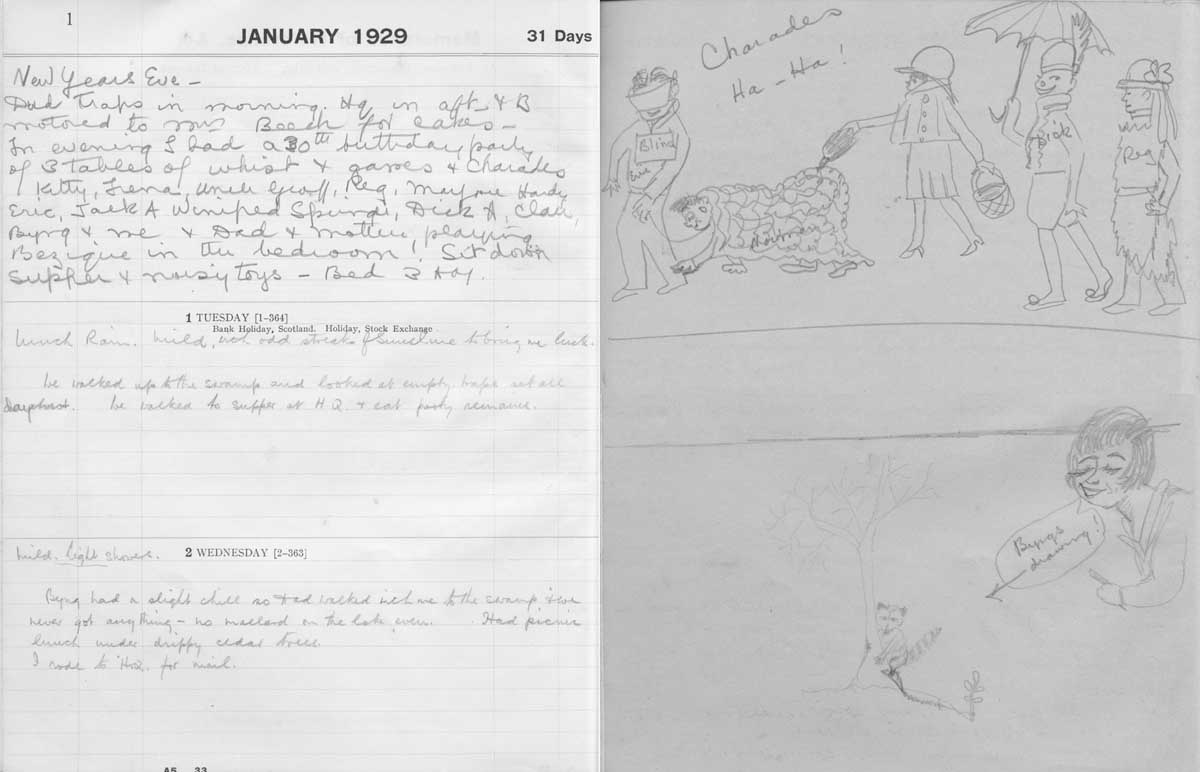 1
JANUARY 1929
31 Days
New Years Eve -
Dad traps in morning. Hq in aft & B
motored to Mrs Beech for cakes -
In evening I had a 30th birthday party
of 3 tables of whist & games & Charades
Kitty, Irena, Uncle Geoff, Reg, Marjorie Hardy
Eric, Jack A Winifred Spurgi, Dick A, Clair,
Byng & me & Dad & mother playing
Bezique in the bedroom! Sit down
supper & noisy toys - Bed 3
1 TUESDAY [1-364]
Bank Holiday, Scotland. Holiday, Stock Exchange
Much Rain. Mild, with odd streaks of sunshine to bring me luck.
We walked up to the swamp and looked at empty traps set all
We walked to supper at H Q. & eat party remains.
Mild. Light showers.
2 WEDNESDAY [2-363]
Byng had a slight chill so Dad walked with me to the swamp & we
never got anything - no mallard on the lake even. Had picnic
lunch under drippy cedar trees.
I rode to H.Q. for mail.
A5 33
Charades
Ha-Ha!
Blind
Eve
Dick
Reg
Byng's
drawing!